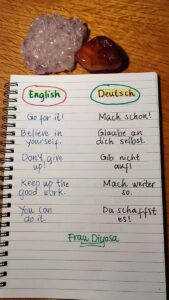 English
Deutsch
Go for it!
Mach schon!
Believe in
yourself.
Glaube an
dich selbst.
Don't give
up!
Gib nicht
auf!
Keep up the
good work.
Mach weiter
so.
You can
do it.
Du schaffst
es!
Frau Diyosa